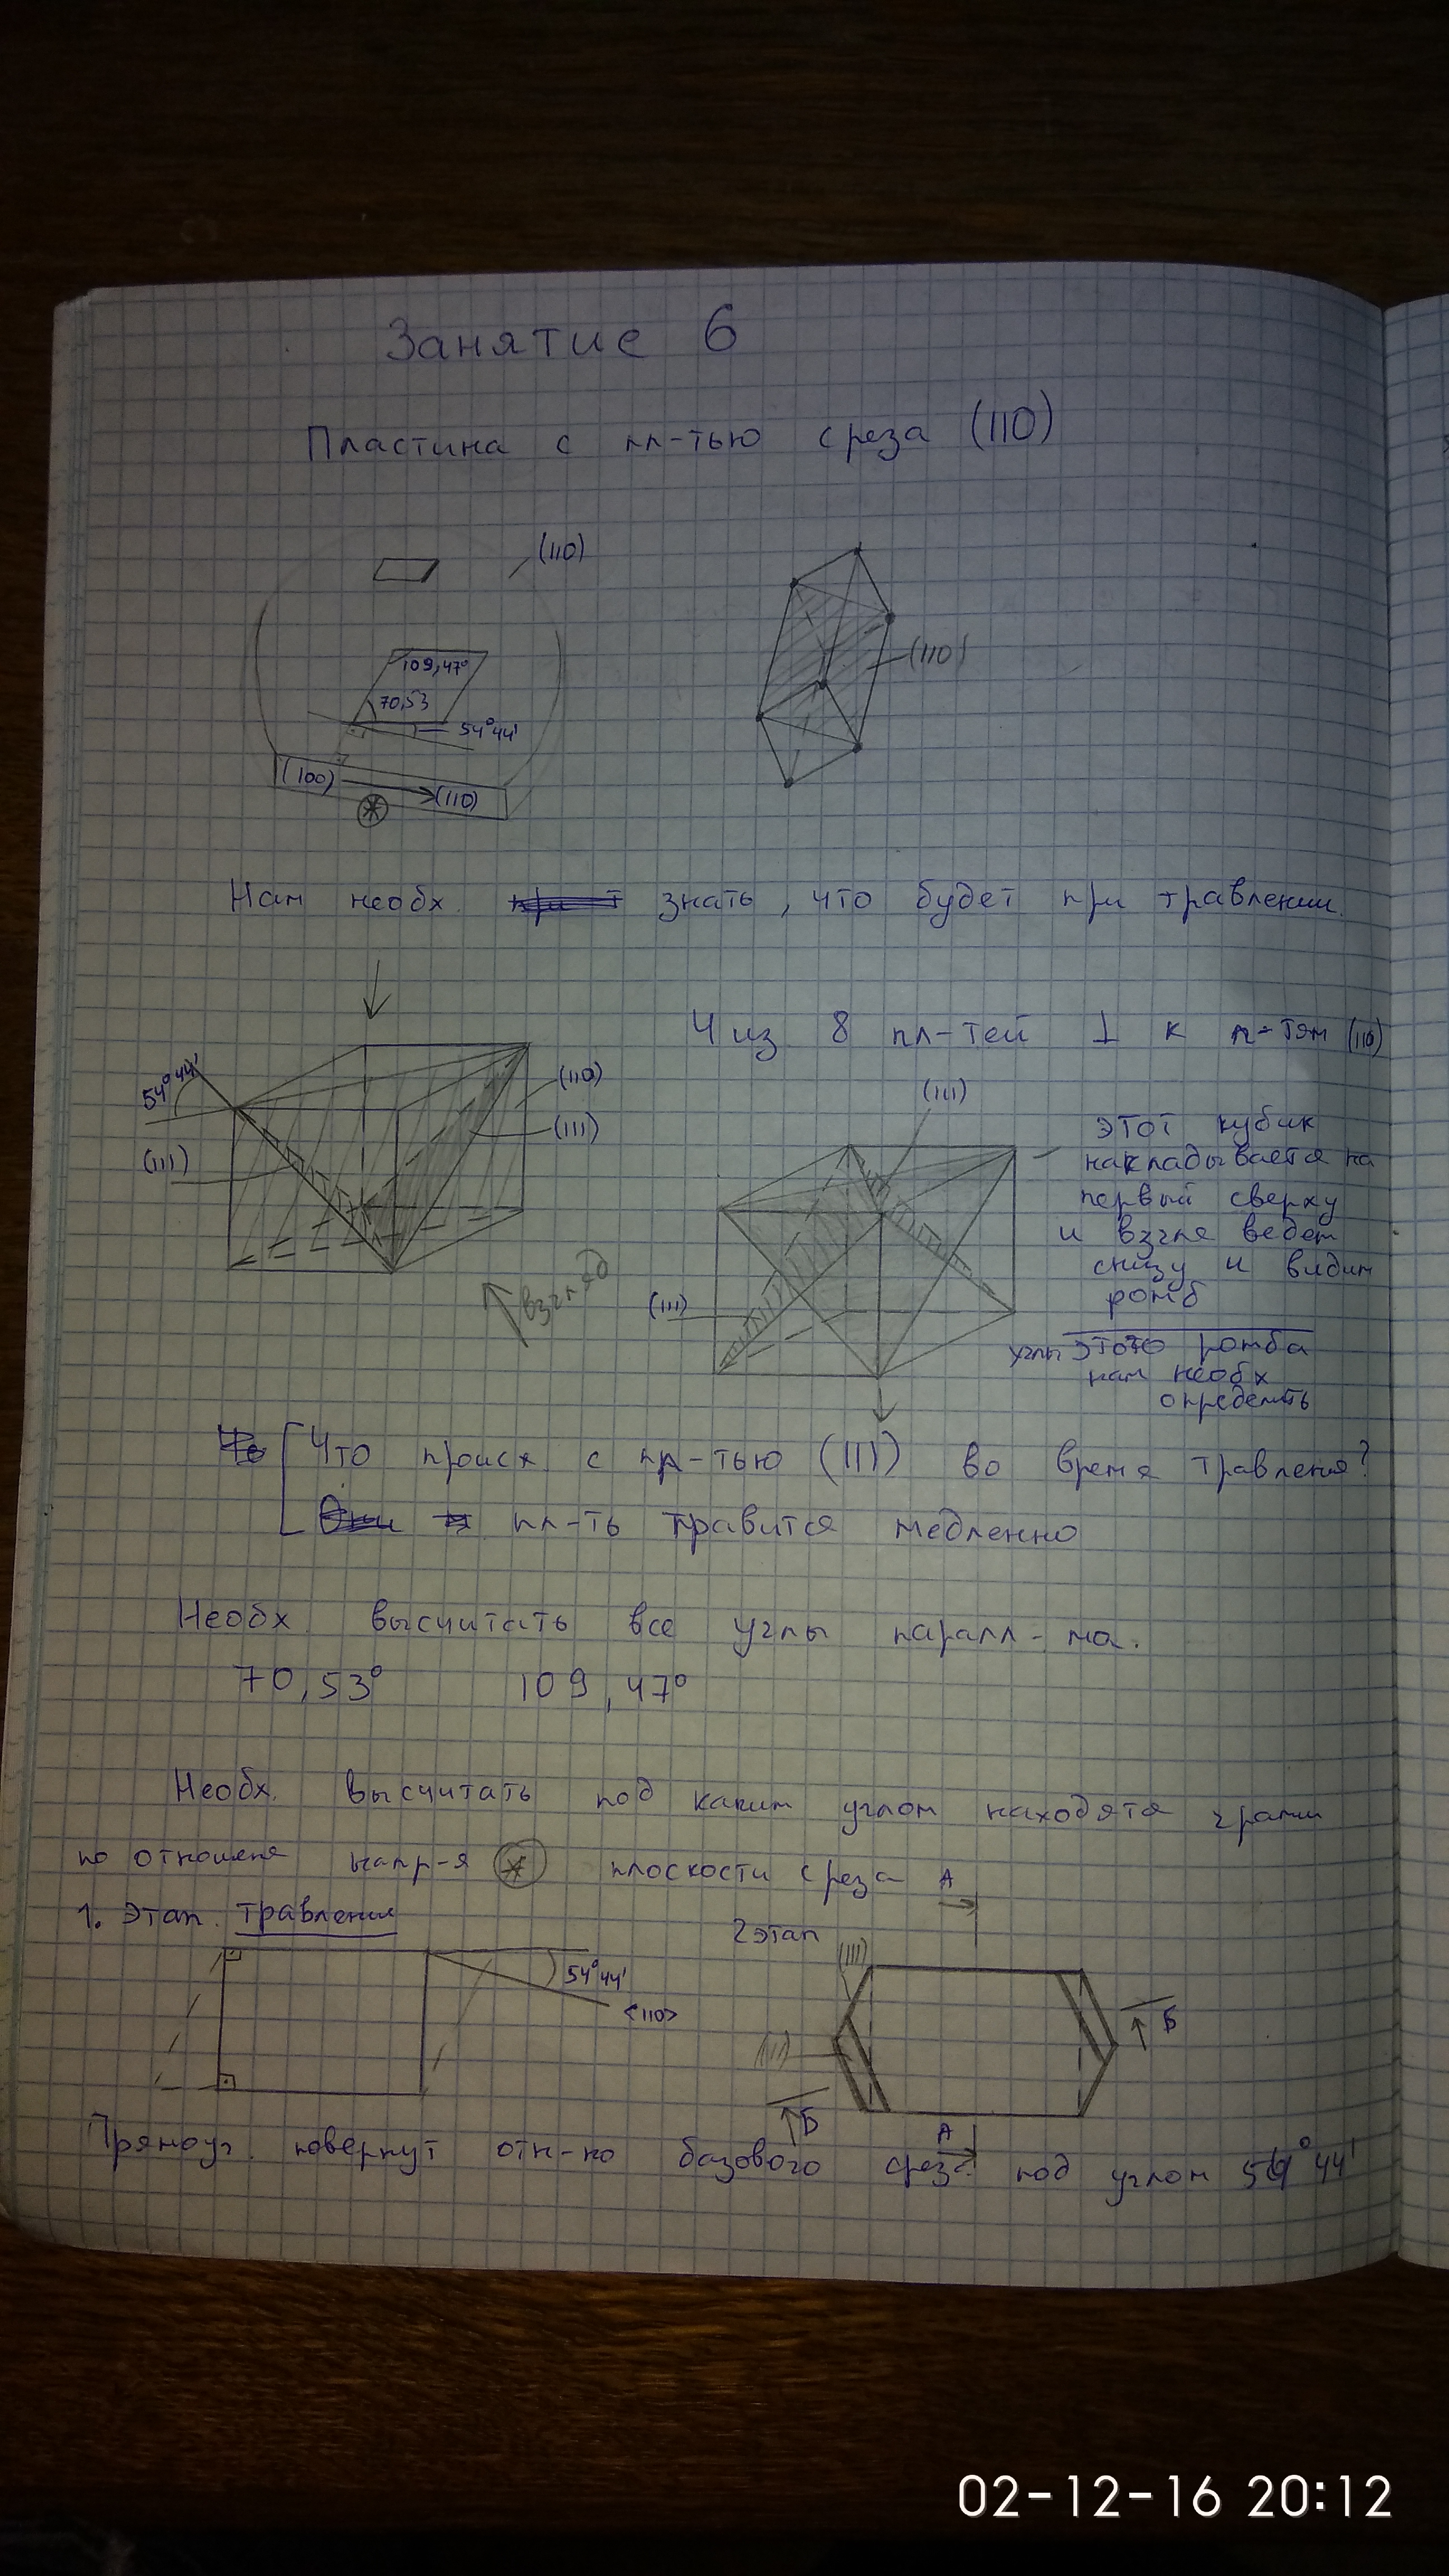 Занятие 6
Пластина с пл-тью среза (110)
(110)
109,47°
70,53
54°44'
(100)
(110)
(110)
Нам необх. знать, что будет при травлении.
4 из 8 пл-тей ⊥ к п-тям (110)
54°44'
(111)
(110)
(111)
взгляд
(111)
(111)
этот кубик
накладывается на
первый сверху
и взгля ведем
снизу и видим
ромб
углы этого ромба
нам необх
определить
Что происх. с пл-тью (111) во время травления?
пл-ть травится медленно
Необх. высчитать все углы паралл-ма.
70,53° 109,47°
Необх. высчитать под каким углом находятя грани
по отношеня напр-я * плоскости среза
1. Этап. травления
54°44'
<110>
2 этап
А
(111)
(111)
Б
Б
А
Прямоуг. повернут отн-но базового среза под углом 54°44'
02-12-16 20:12